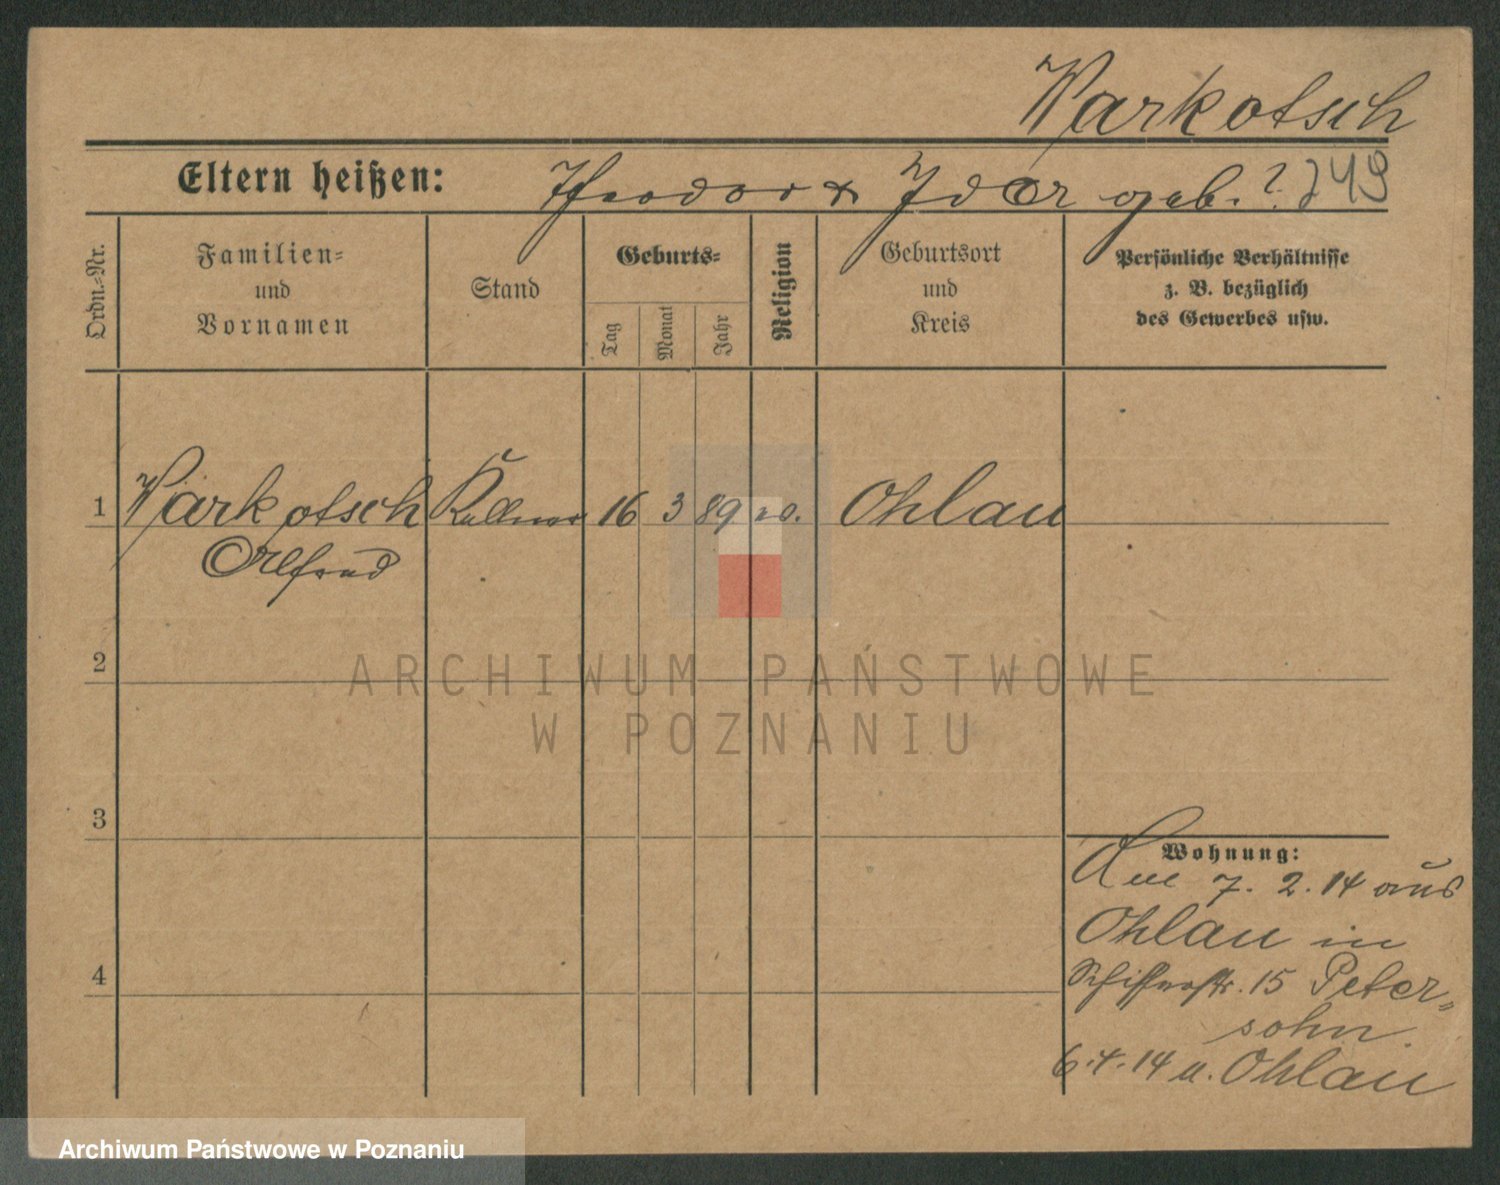 Warkotsch
Eltern heißen: Theodor & Ida geb. ? 749
Ordn.-Nr.
Familien- und Vornamen
Stand
Geburts-
Tag
Monat
Jahr
Religion
Geburtsort und Kreis
Persönliche Verhältnisse z. B. bezüglich des Gewerbes usw.
1 Warkotsch Kellner 16 3 89 ev. Ohlau
Alfred
2
3
4
Wohnung:
Am 7. 2. 14 aus
Ohlau in
15 Peter-
sohn.
6.4.14 n. Ohlau
ARCHIWUM PAŃSTWOWE
W POZNANIU
Archiwum Państwowe w Poznaniu